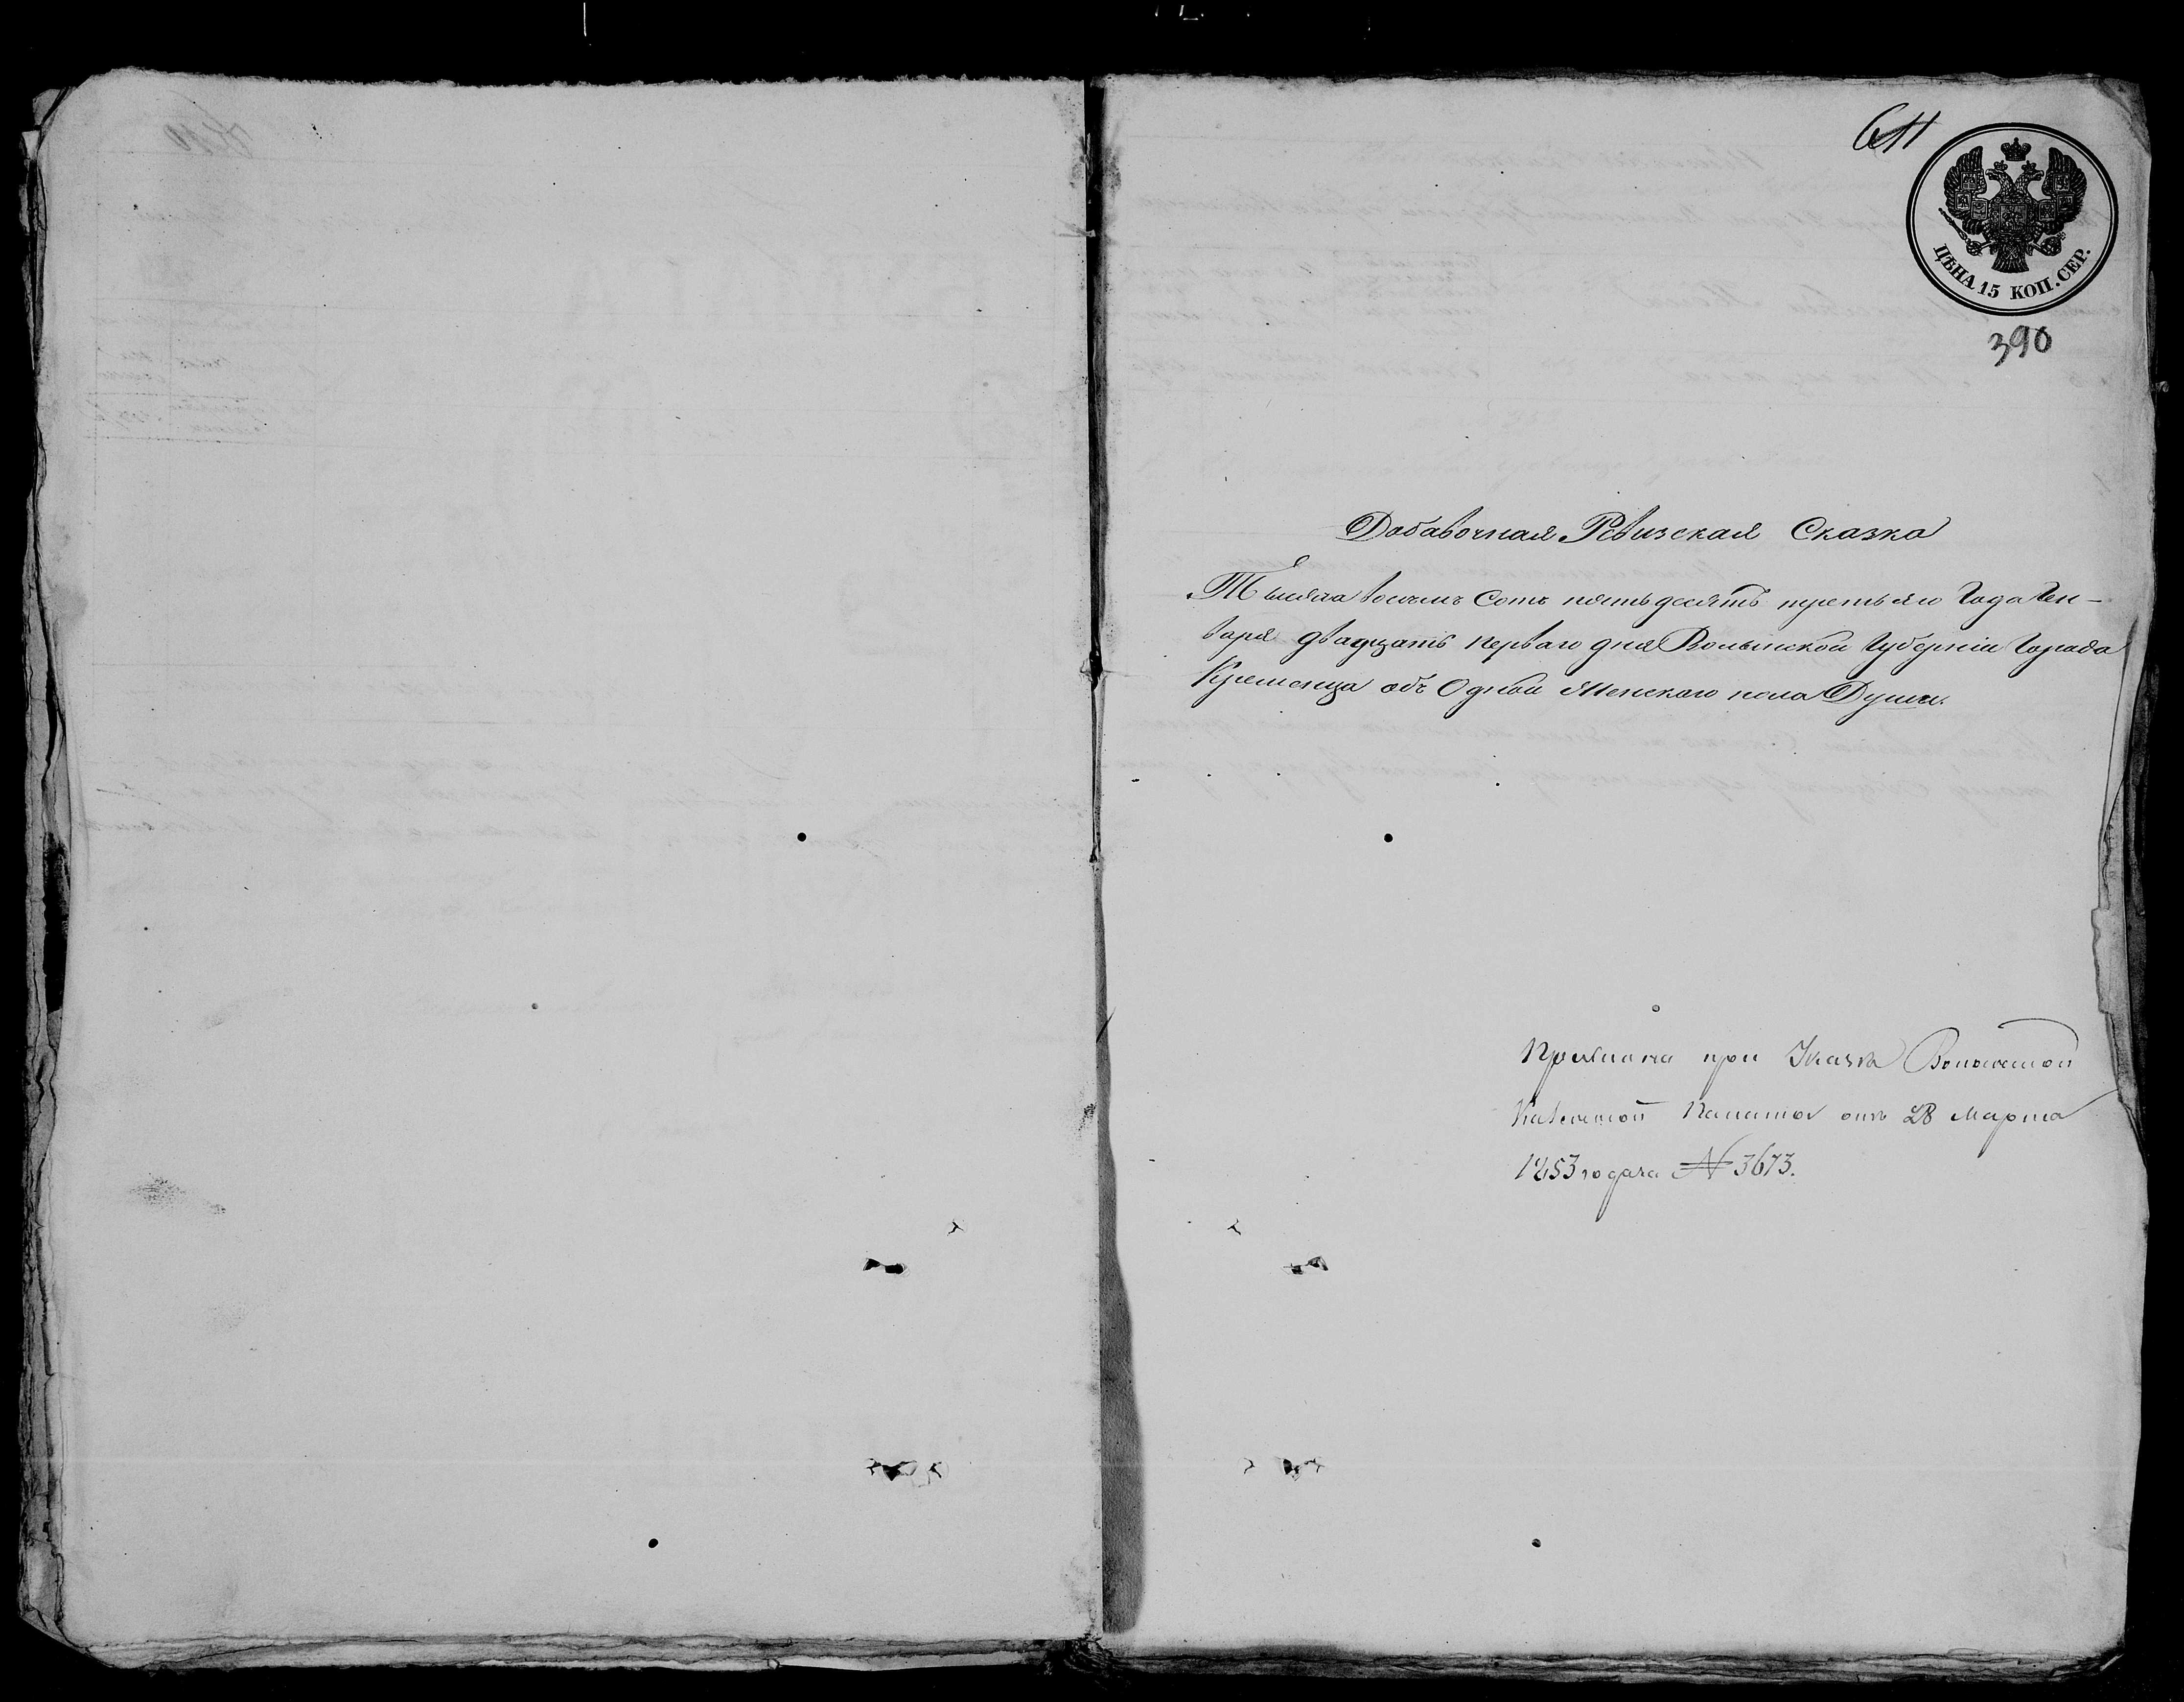 611
ЦѢНА 15 КОП. СЕР.
390
Добавочная Ревизская Сказка
Тысяча восемь сотъ пятьдесятъ третьяго Года Ген-
варя двадцать перваго дня Волынской Губерніи Города
Кременца объ Одной Женскаго пола Души.
при Указѣ Волынской
Казенной Палаты отъ 28 Марта
1853 года за № 3673.